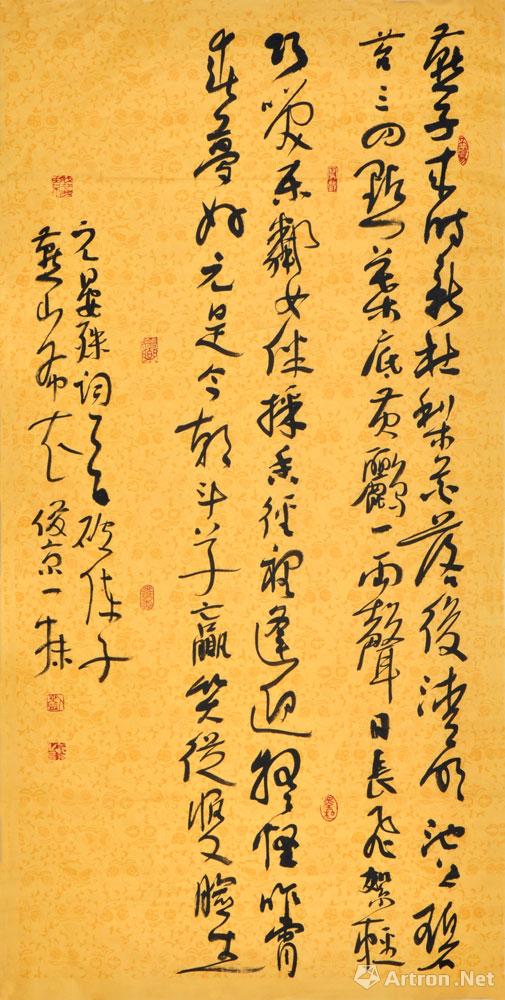 燕子來時新社梨花落後清明池上碧
苔三四點葉底黃鸝一兩聲日長飛絮輕
巧笑東鄰女伴採香徑裡逢迎疑怪昨宵
春夢好元是今朝斗草贏笑從雙臉生
晏殊詞破陣子
燕山布衣俊京一
Artron.Net